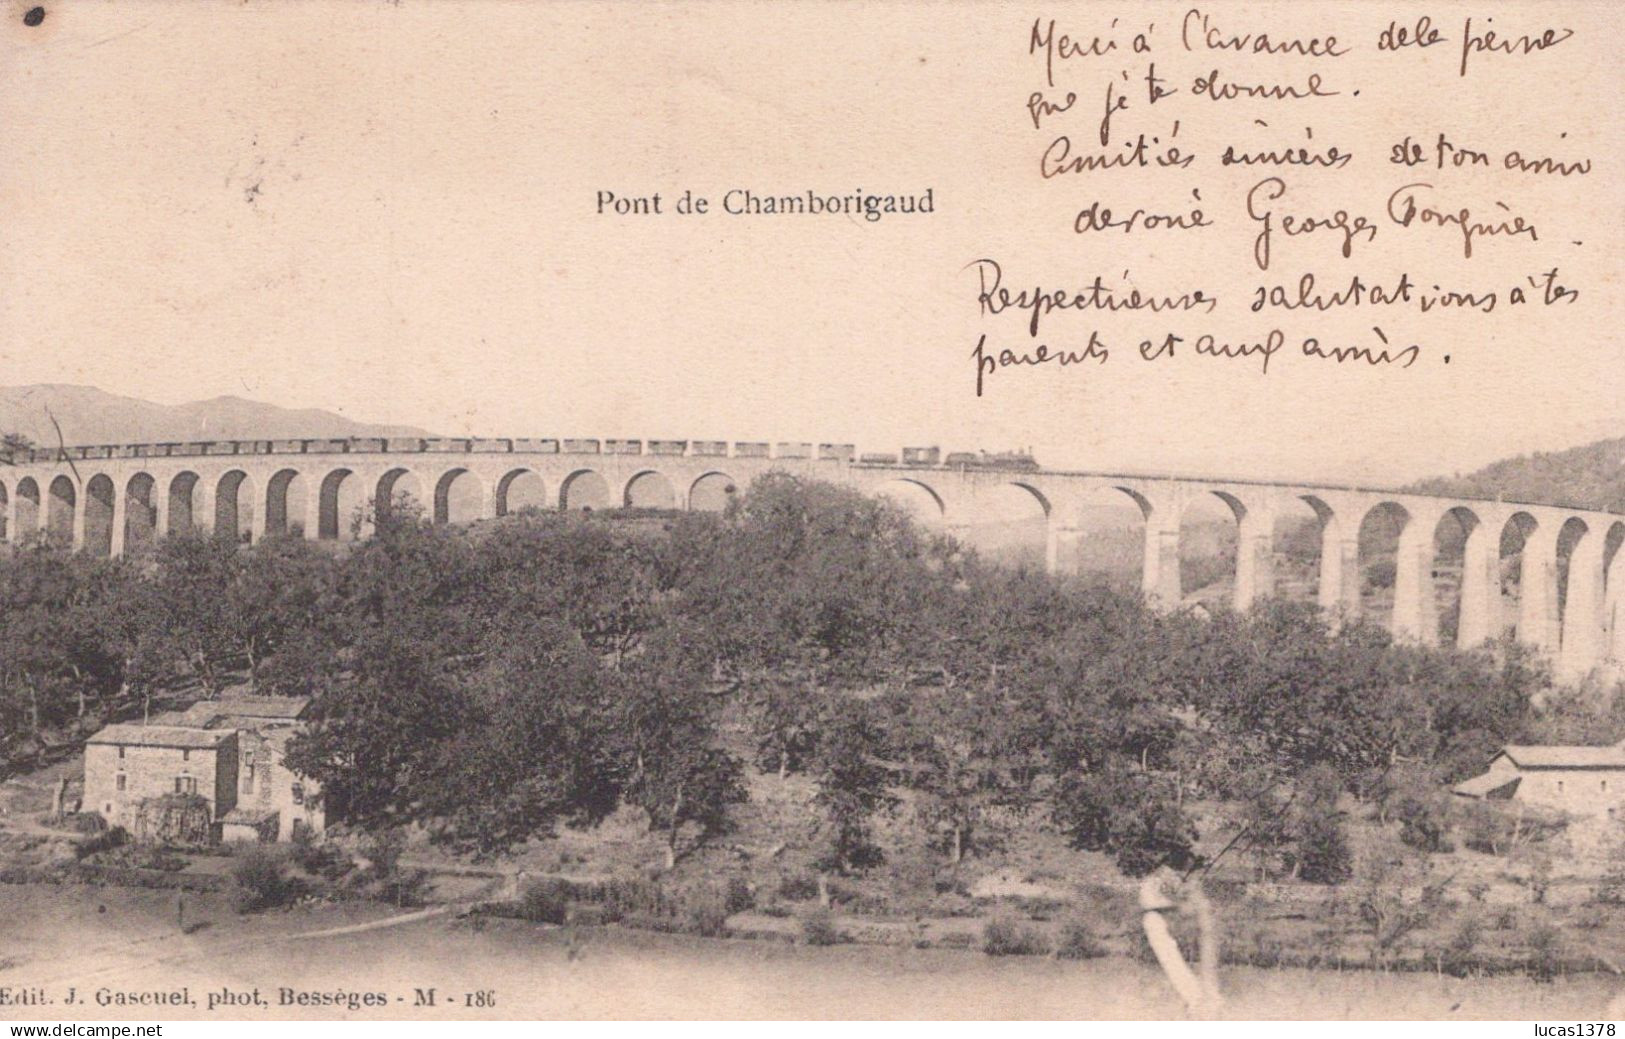 Merci à l'avance de la peine
que je te donne.
Amitiés sincères de ton ami
dévoué Georges
Respectueuses salutations à tes
parents et aux amis.
Pont de Chamborigaud
Edit. J. Gascuel, phot, Bessèges - M - 186
www.delcampe.net
lucas1378